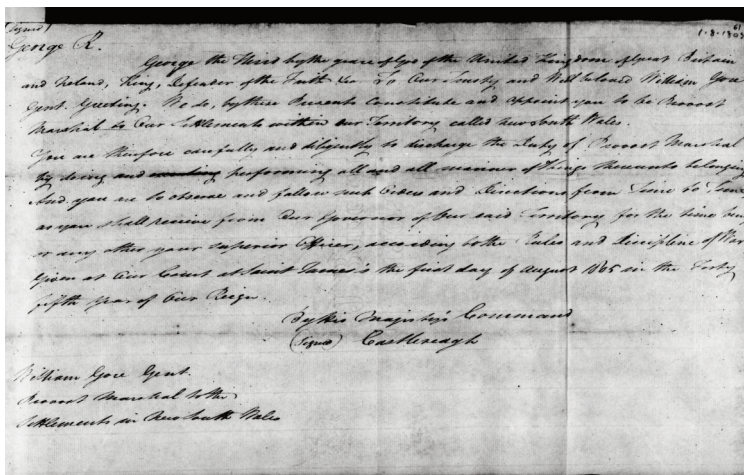 (Signed)
61
1-8-1805
George R.
George the Third by the grace of God of the United Kingdom of Great Britain
and Ireland, King, Defender of the Faith &c To Our Trusty and Well beloved William Gore
Gent. Greeting. We do, by these Presents Constitute and appoint you to be Provost
Marshal to Our Settlements within our Territory called New South Wales.
You are therefore carefully and diligently to discharge the Duty of Provost Marshal
by doing and performing all and all manner of things thereunto belonging
And you are to observe and follow such Orders and Directions from Time to Time
as you shall receive from Our Governor of Our said Territory for the time being
or any other your superior Officer, according to the Rules and Discipline of War
Given at Our Court at Saint James's the first day of August 1805 in the Forty
fifth year of Our Reign.
By His Majesty's Command
(Signed) Castlereagh
William Gore Gent.
Provost Marshal to the
Settlements in New South Wales